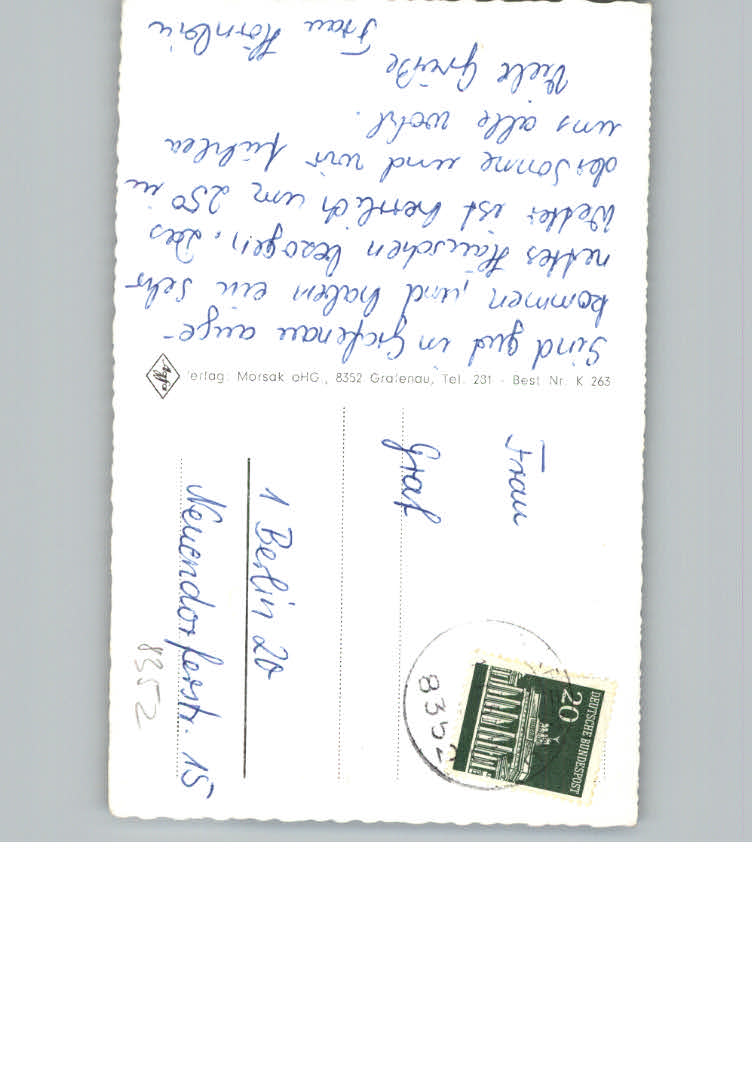 Sind gut in Grafenau ange-
kommen und haben ein sehr
nettes Häuschen bezogen, Das
Wetter ist herrlich um 250 in
der Sonne und wir fühlen
uns alle wohl.
Viele Grüße
Frau Hörnlein
Agfa
Verlag: Morsak oHG., 8352 Grafenau, Tel. 231 - Best. Nr. K 263
Frau
Graf
1 Berlin 20
Neuendorferstr. 15
8352
DEUTSCHE BUNDESPOST
20
8352